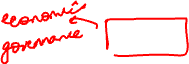 economics
governance